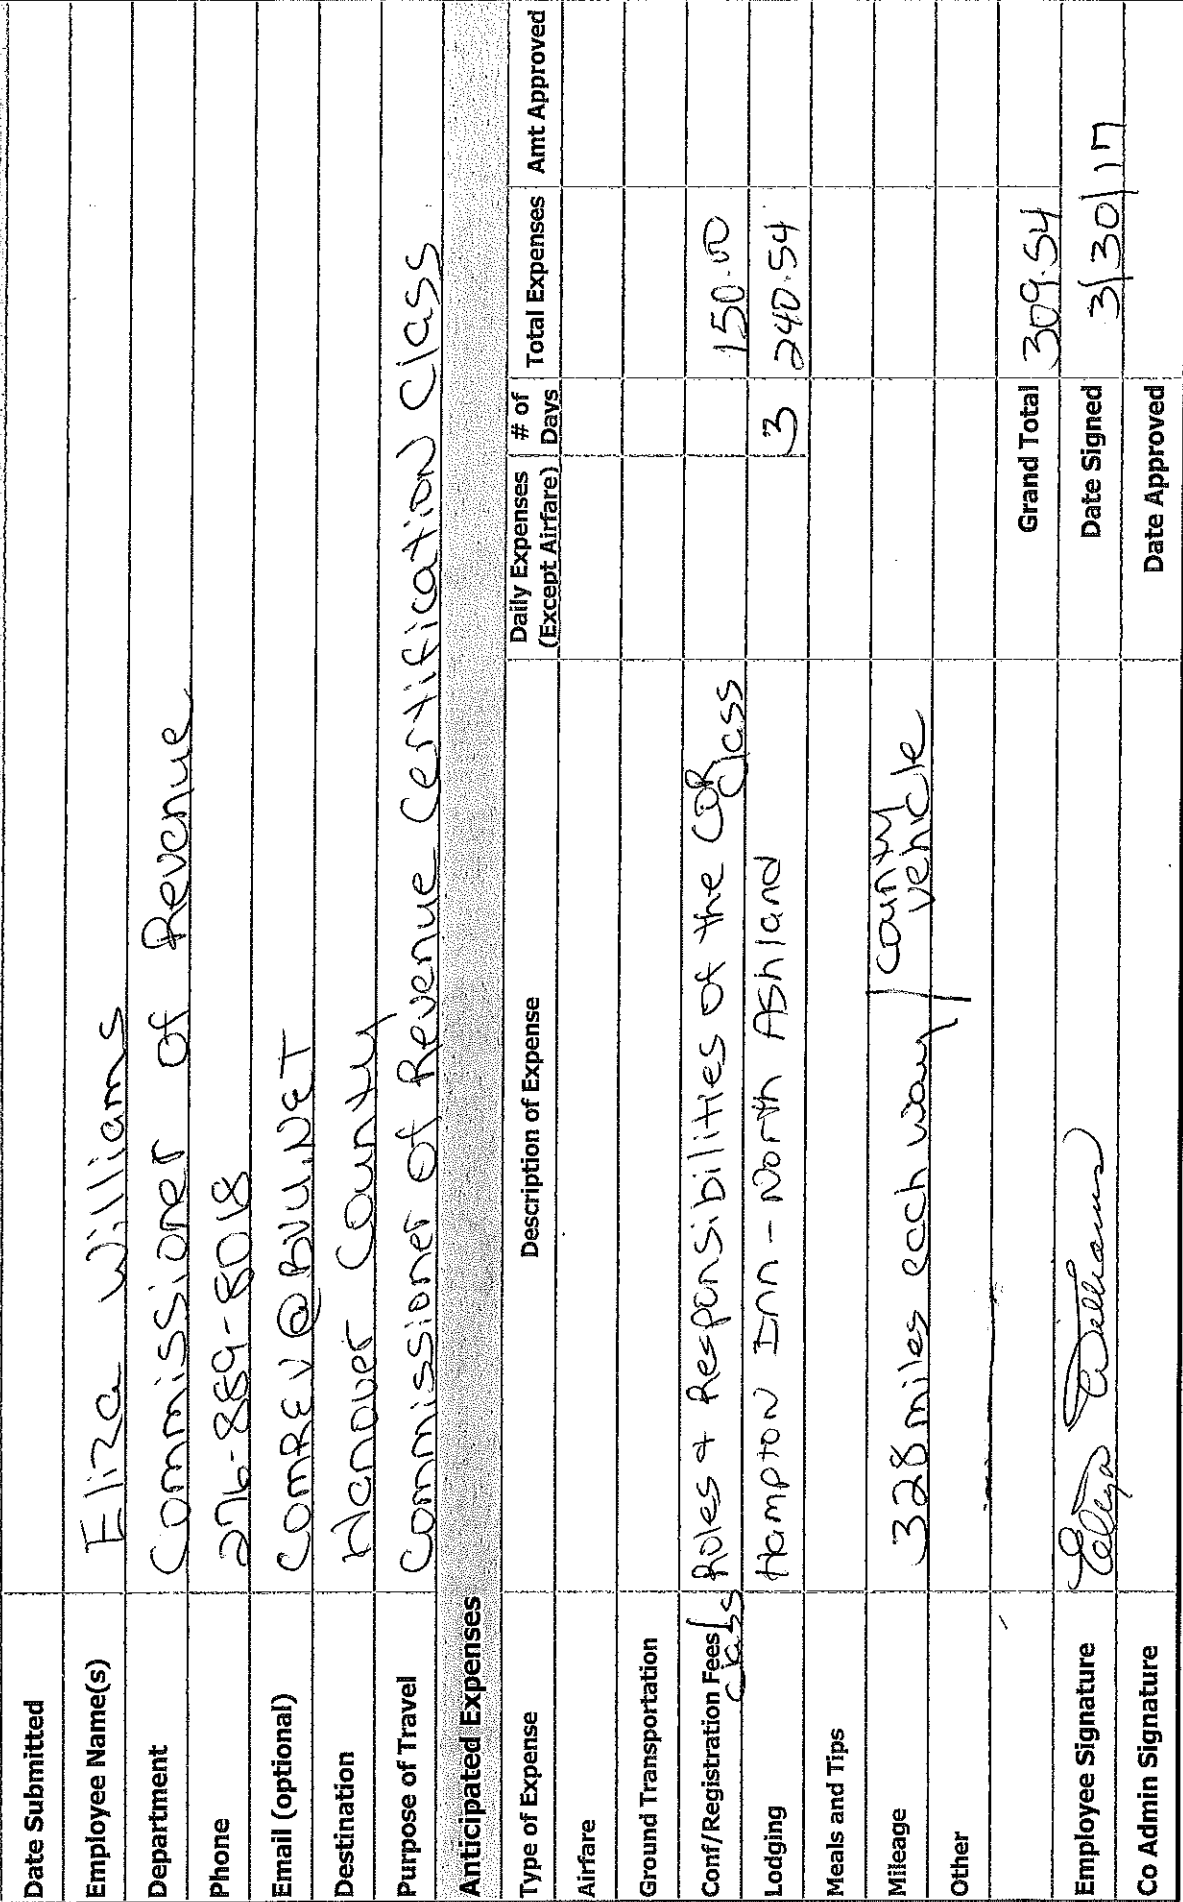 Date Submitted
Employee Name(s) Eliza Williams
Department Commissioner of Revenue
Phone 276-889-8018
Email (optional) COMREV@BVU.NET
Destination Hanover County
Purpose of Travel Commissioner of Revenue Certification Class
Anticipated Expenses
Type of Expense Description of Expense Daily Expenses (Except Airfare) # of Days Total Expenses Amt Approved
Airfare
Ground Transportation
Conf/Registration Fees/Class Roles & Responsibilities of the COR Class 150.00
Lodging Hampton Inn - North Ashland 3 240.54
Meals and Tips
Mileage 328 miles each way / county vehicle
Other
Grand Total 309.54
Employee Signature Eliza Williams Date Signed 3/30/17
Co Admin Signature Date Approved